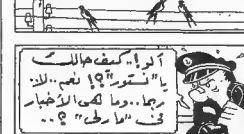 آلو!.. كيف حالك
يا "نستور"؟! نعم.. لا..
ربما.. وما هى الأخبار
فى "مارلى" ؟..